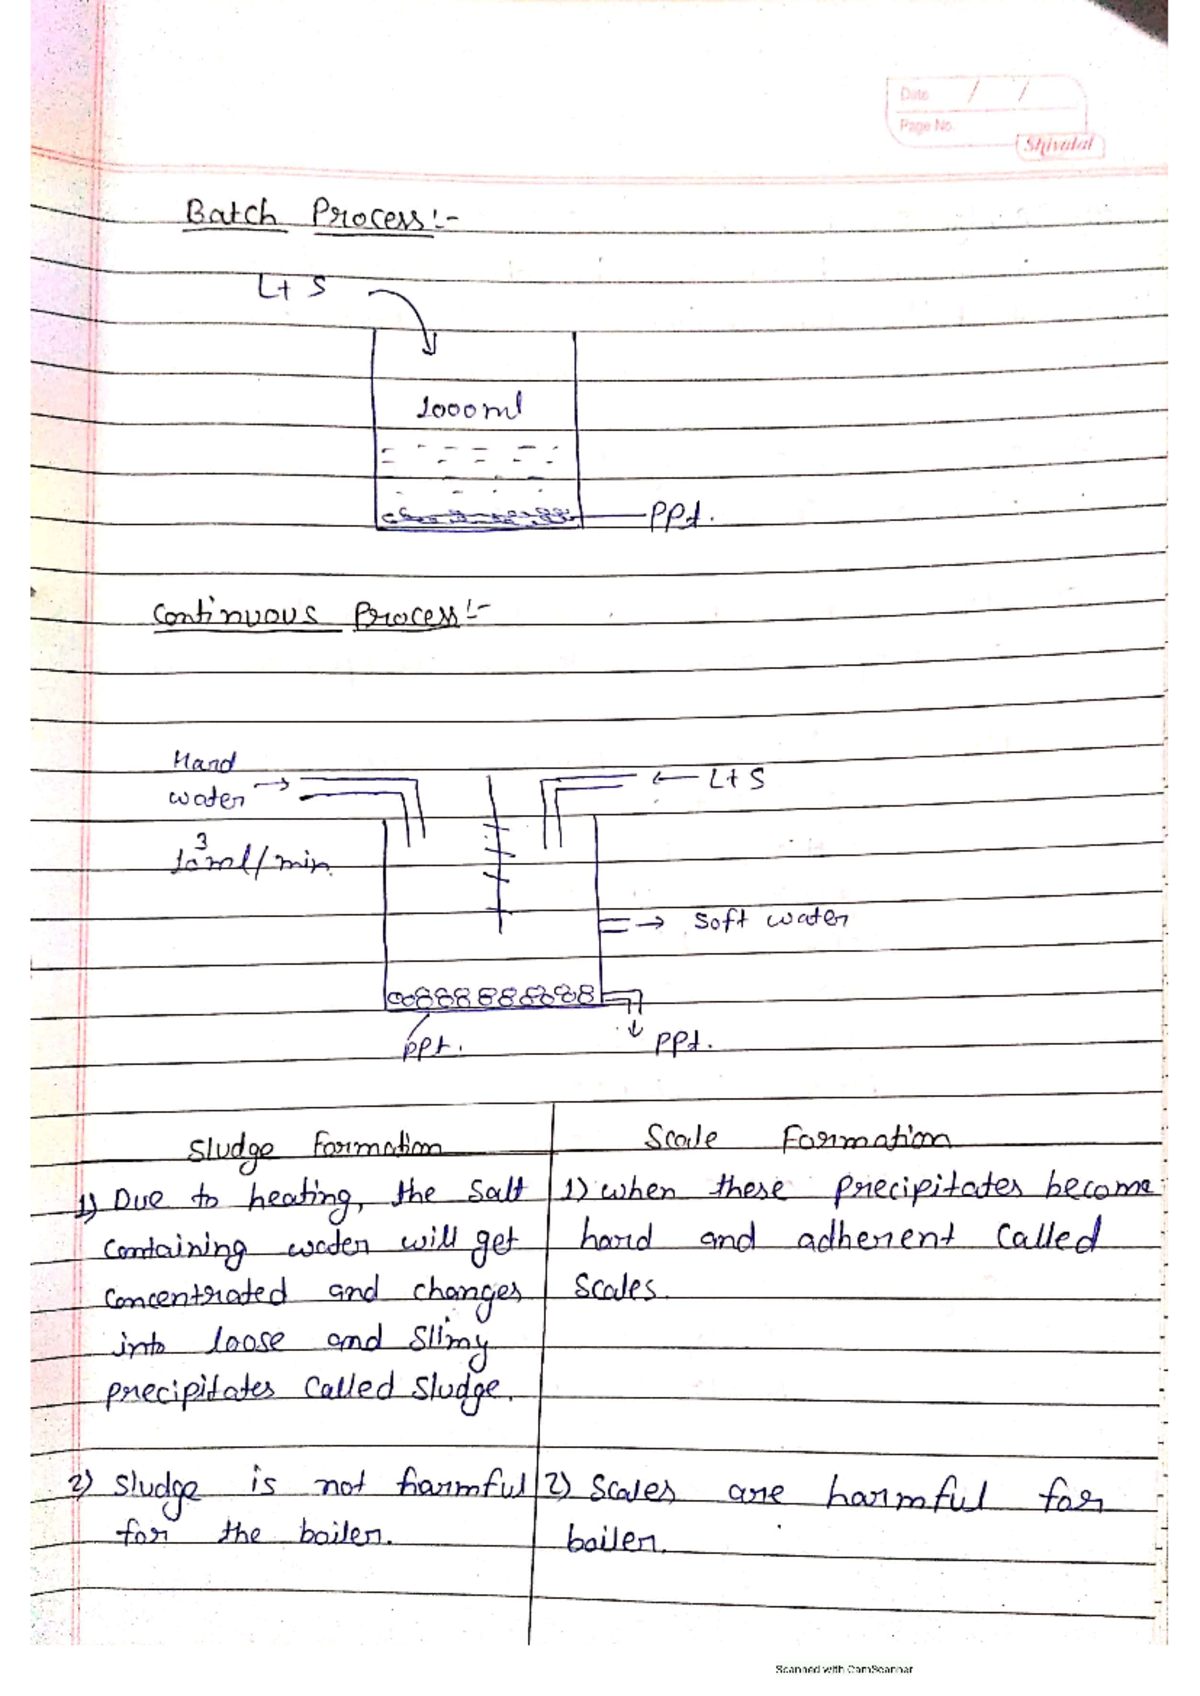 Date / /
Page No.
Shivalal
Batch Process:-
L+ S
1000ml
PPt.
Continuous Process:-
Hard
water
L+ S
10³ml/min.
Soft water
ppt.
PPt.
Sludge Formation
1) Due to heating, the Salt
containing water will get
concentrated and changes
into loose and Slimy
precipitates Called Sludge.
2) Sludge is not harmful
for the boiler.
Scale Formation
1) when these precipitates become
hard and adherent Called
Scales.
2) Scales are harmful for
boiler.
Scanned with CamScanner